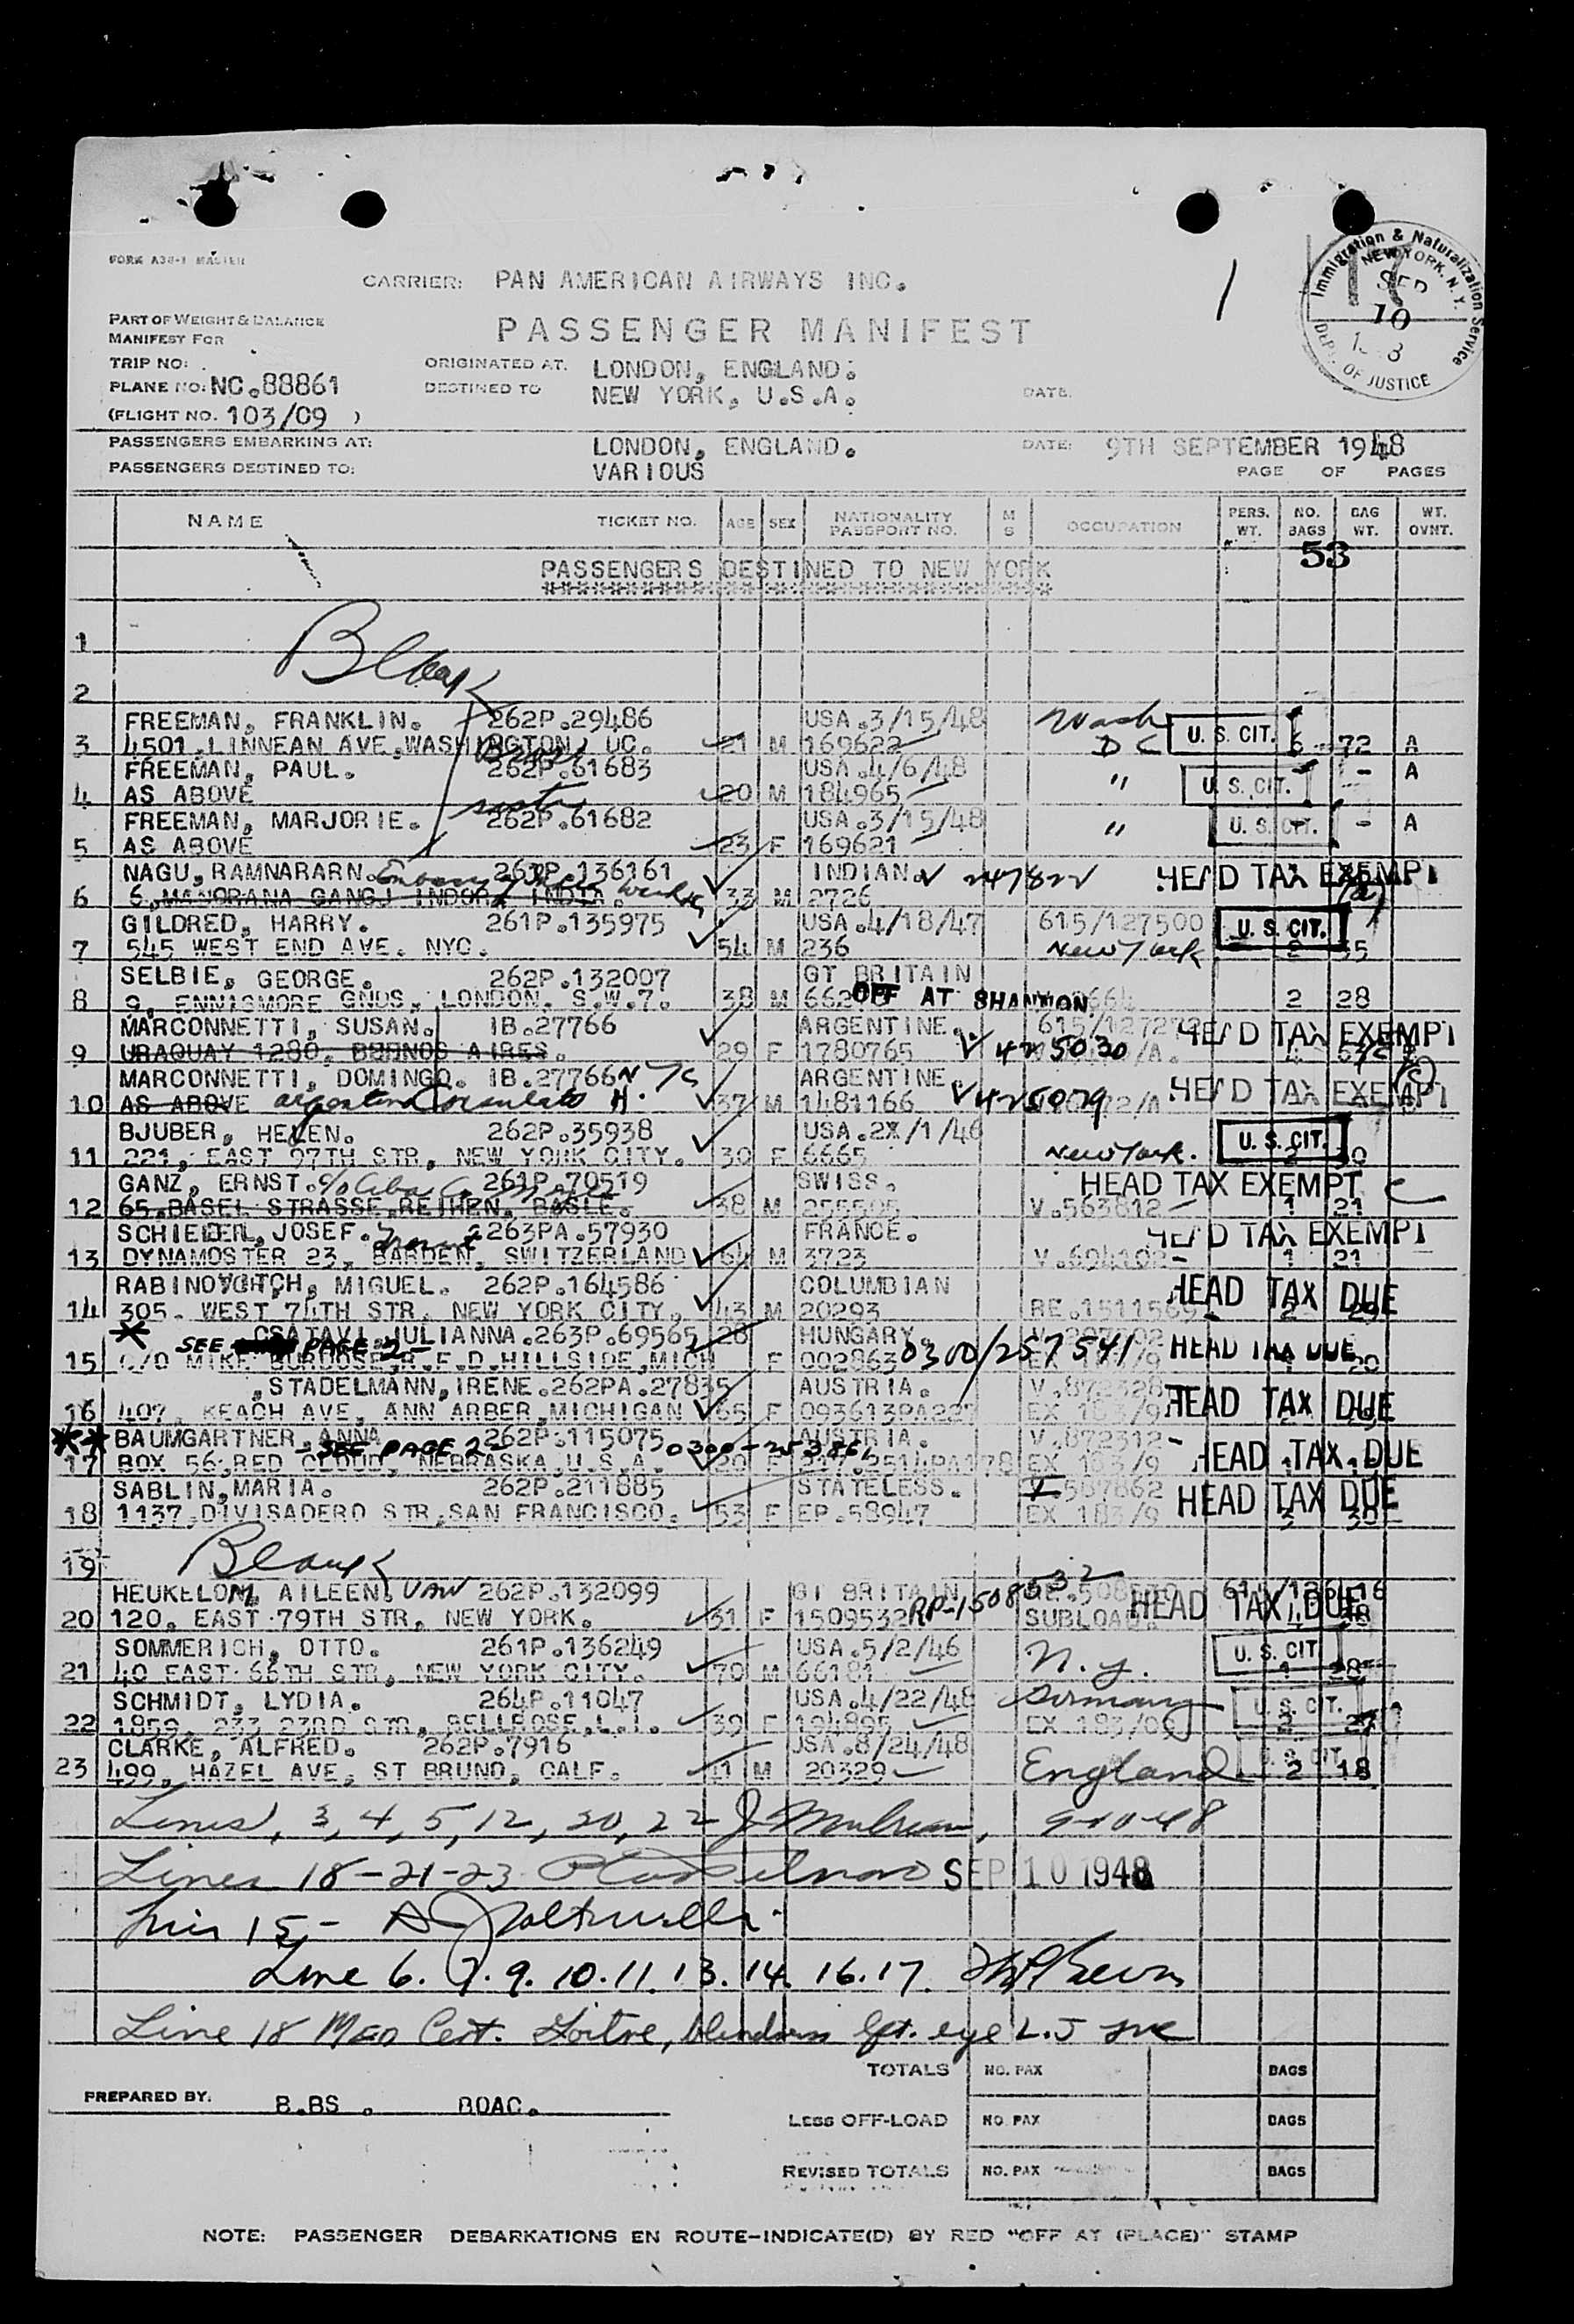 FORM A38-1 MASTER
CARRIER: PAN AMERICAN AIRWAYS INC.
1
Immigration & Naturalization Service
NEW YORK, N. Y.
SEP
10
DEPT. OF JUSTICE
17
PART OF WEIGHT & BALANCE
MANIFEST FOR
PASSENGER MANIFEST
TRIP NO:
ORIGINATED AT. LONDON, ENGLAND.
PLANE NO: NC.88861
DESTINED TO NEW YORK, U.S.A.
DATE.
(FLIGHT NO. 103/09 )
PASSENGERS EMBARKING AT: LONDON, ENGLAND. DATE: 9TH SEPTEMBER 1948
PASSENGERS DESTINED TO: VARIOUS PAGE OF PAGES
NAME TICKET NO. AGE SEX NATIONALITY PASSPORT NO. M S OCCUPATION PERS. WT. NO. BAGS BAG WT. WT. OVNT.
53
PASSENGERS DESTINED TO NEW YORK
1
Blank
2
FREEMAN, FRANKLIN. 262P.29486 USA.3/15/48 Wash
3 4501.LINNEAN AVE,WASHINGTON, DC. 21 M 169622 D C U. S. CIT. 6 72 A
FREEMAN, PAUL. 262P.61683 USA.4/6/48 A
4 AS ABOVE 20 M 184965 " U. S. CIT. - -
FREEMAN, MARJORIE. sister 262P.61682 USA.3/15/48
5 AS ABOVE 23 F 169621 " U. S. CIT. - A
NAGU, RAMNARARN. 261P.136161 INDIAN. HEAD TAX EXEMPT
6 6,MANORANA GANGJ INDOR, INDIA. 33 M 2726
GILDRED, HARRY. 261P.135975 USA.4/18/47 615/127500 U. S. CIT.
7 545 WEST END AVE. NYC. 54 M 236 New York 2 35
SELBIE, GEORGE. 262P.132007 GT BRITAIN
8 9, ENNISMORE GNDS, LONDON. S.W.7. 38 M OFF AT SHANNON 2 28
MARCONNETTI, SUSAN. IB.27766 ARGENTINE. HEAD TAX EXEMPT
9 URAQUAY 1280, BUENOS AIRES. 29 F 1780765 V 425030
MARCONNETTI, DOMINGO. IB.27766 NYC ARGENTINE. HEAD TAX EXEMPT
10 AS ABOVE Argentina Consulate 37 M 1481166 V 425029
BJUBER, HELEN. 262P.35938 USA.2X/1/46 U. S. CIT.
11 221, EAST 97TH STR, NEW YORK CITY. 30 F 6665 New York. 2 30
GANZ, ERNST. c/o 261P.70519 SWISS. HEAD TAX EXEMPT
12 65.BASEL STRASSE,REIHEN. BASLE. 38 M 255505 V.563812 1 21
SCHIEDEL, JOSEF. 263PA.57930 FRANCE. HEAD TAX EXEMPT
13 DYNAMOSTER 23, BARDEN, SWITZERLAND 64 M 3723 V.694102 1 21
RABINOVITCH, MIGUEL. 262P.164586 COLUMBIAN HEAD TAX DUE
14 305. WEST 74TH STR. NEW YORK CITY, 43 M 20293 RE.1511569 2 29
* SEE PAGE 2- CSATAVI JULIANNA.263P.69565 28 HUNGARY.
15 C/O MIKE R.F.D.HILLSIDE,MICH F 002863 0300/257541 HEAD TAX DUE 20
,STADELMANN,IRENE.262PA.27835 AUSTRIA. V.872328
16 407, KEACH AVE, ANN ARBER,MICHIGAN 65 F 093613PA227 EX 183/9 HEAD TAX DUE
** BAUMGARTNER ANNA 262P.115075 AUSTRIA. V.872312
- SEE PAGE 2- 0300-253862
17 BOX 56,RED CLOUD, NEBRASKA,U.S.A. 20 F EX 183/9 HEAD TAX DUE
SABLIN,MARIA. 262P.211885 STATELESS. HEAD TAX DUE
18 1137,DIVISADERO STR,SAN FRANCISCO. 53 F EP.58947 EX 183/9 3 30
19 Blank
HEUKELOM, AILEEN. VAN 262P.132099 GT BRITAIN
20 120. EAST 79TH STR, NEW YORK. 31 F 1509532 SUBLOAD. HEAD TAX DUE
SOMMERICH, OTTO. 261P.136249 USA.5/2/46 N.Y. U. S. CIT.
21 40 EAST 66TH STR, NEW YORK CITY. 70 M 66181
SCHMIDT, LYDIA. 264P.11047 USA.4/22/48 Germany U. S. CIT.
22 1859, 233 23RD STR, BELLROSE,L.I. 39 F 194895 EX 183/09 2 27
CLARKE, ALFRED. 262P.7916 USA.8/24/48 U. S. CIT.
23 499, HAZEL AVE, ST BRUNO, CALF. 41 M 20329 England 2 18
Lines, 3, 4, 5, 12, 20, 22 9-10-48
Lines 18-21-23 SEP 10 1948
Line 15-
Line 6. 7. 9. 10. 11. 13. 14. 16. 17.
Line 18 Med Cert. Goitre, blindness lft. eye
TOTALS NO. PAX BAGS
PREPARED BY. B.BS . BOAC.
LESS OFF-LOAD NO. PAX BAGS
REVISED TOTALS NO. PAX BAGS
NOTE: PASSENGER DEBARKATIONS EN ROUTE-INDICATE(D) BY RED "OFF AT (PLACE)" STAMP